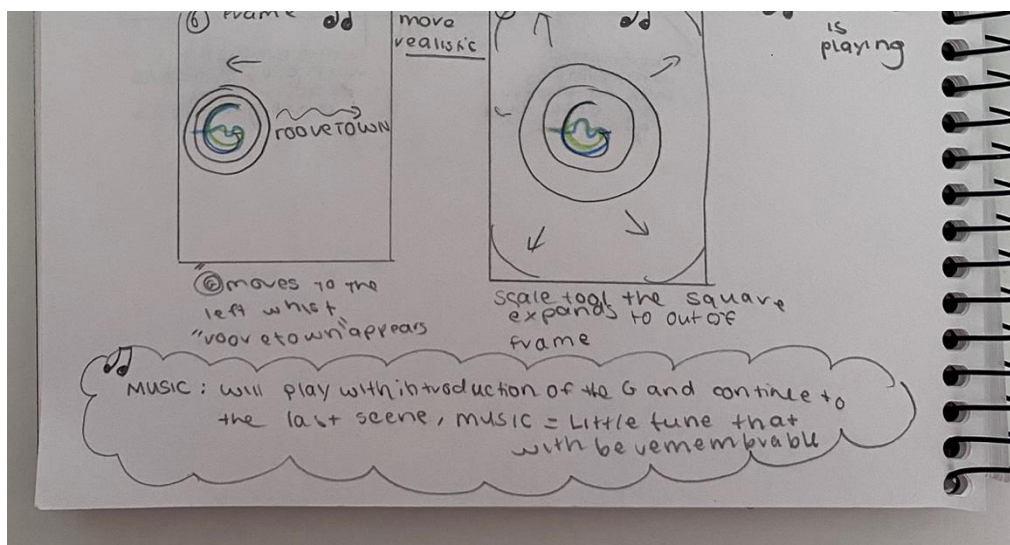 ⑥ Frame
move
realistic
is
playing
rooveTOWN
"Ⓖ moves to the
left whist
"roovetown" appears
scale tool the square
expands to out of
frame
MUSIC : will play with introduction of the G and continue to
the last scene, music = Little tune that
with be remembrable